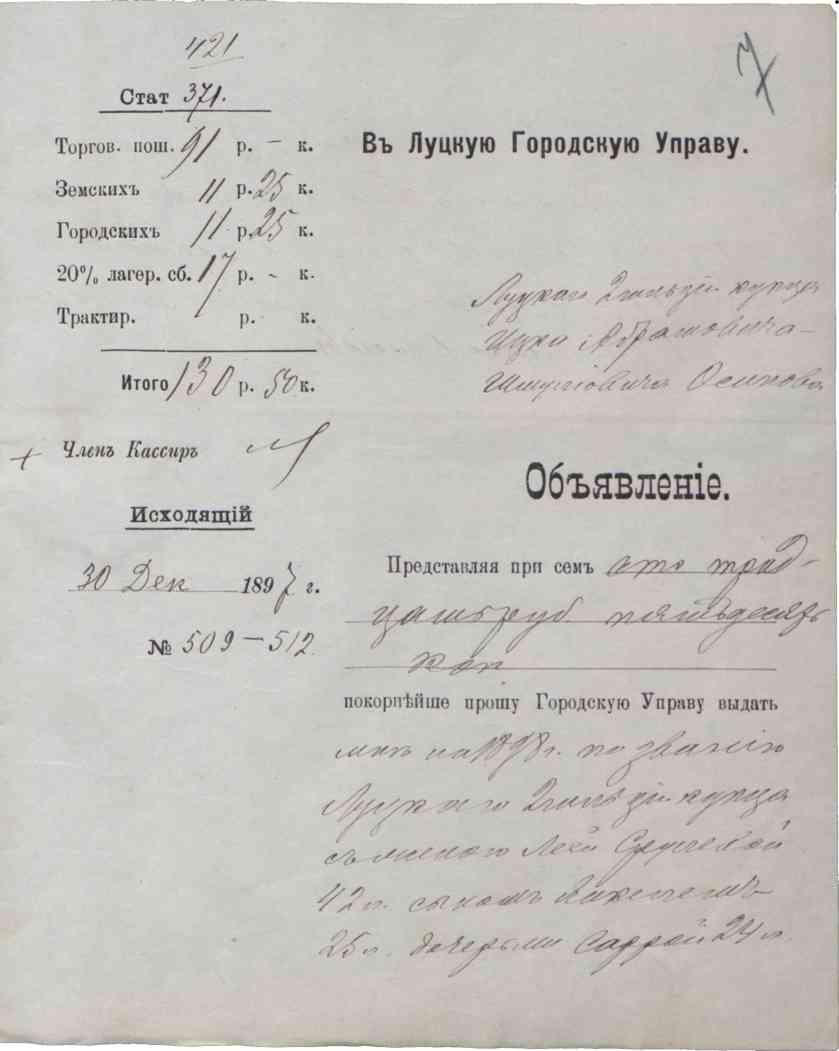 421
Стат 371.
Торгов. пош. 91 р. – к.
Земскихъ 11 р. 25 к.
Городскихъ 11 р. 25 к.
20% лагер. сб. 17 р. – к.
Трактир. р. к.
Итого 130 р. 50 к.
+ Членъ Кассиръ
Исходящій
30 Дек 1897 г.
№ 509–512
7
Въ Луцкую Городскую Управу.
Луцкаго 2 гильдіи купца
Ицка Абрамовича
Осипова
Объявленіе.
Представляя при семъ сто трид-
цать руб. пятьдесятъ
коп
покорнѣйше прошу Городскую Управу выдать
мнѣ на 1898 г. по званію
Луцкаго 2 гильдіи купца
съ женою
42 л. сыномъ
25 л. дочерьми Саррой 24 л.